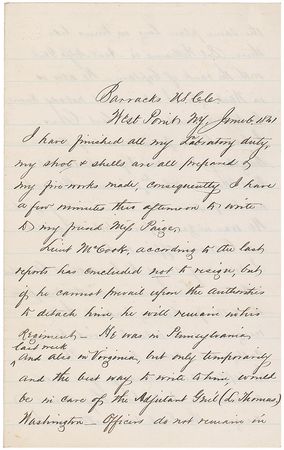 Barracks U.S. Co.
West Point, N.Y. June 6 1861
I have finished all my Laboratory duty,
my shot & shells are all prepared &
my fire works made, consequently I have
a few minutes this afternoon to write
to my friend Miss Paige.
Lieut McCook, according to the last
reports has concluded not to resign, but
if he cannot prevail upon the Authorities
to detach him, he will remain in his
Regiment – He was in Pennsylvania,
last week
And also in Virginia, but only temporarily
and the best way to write to him, would
be in care of the Adjutant Genl (L. Thomas)
Washington – Officers do not remain in